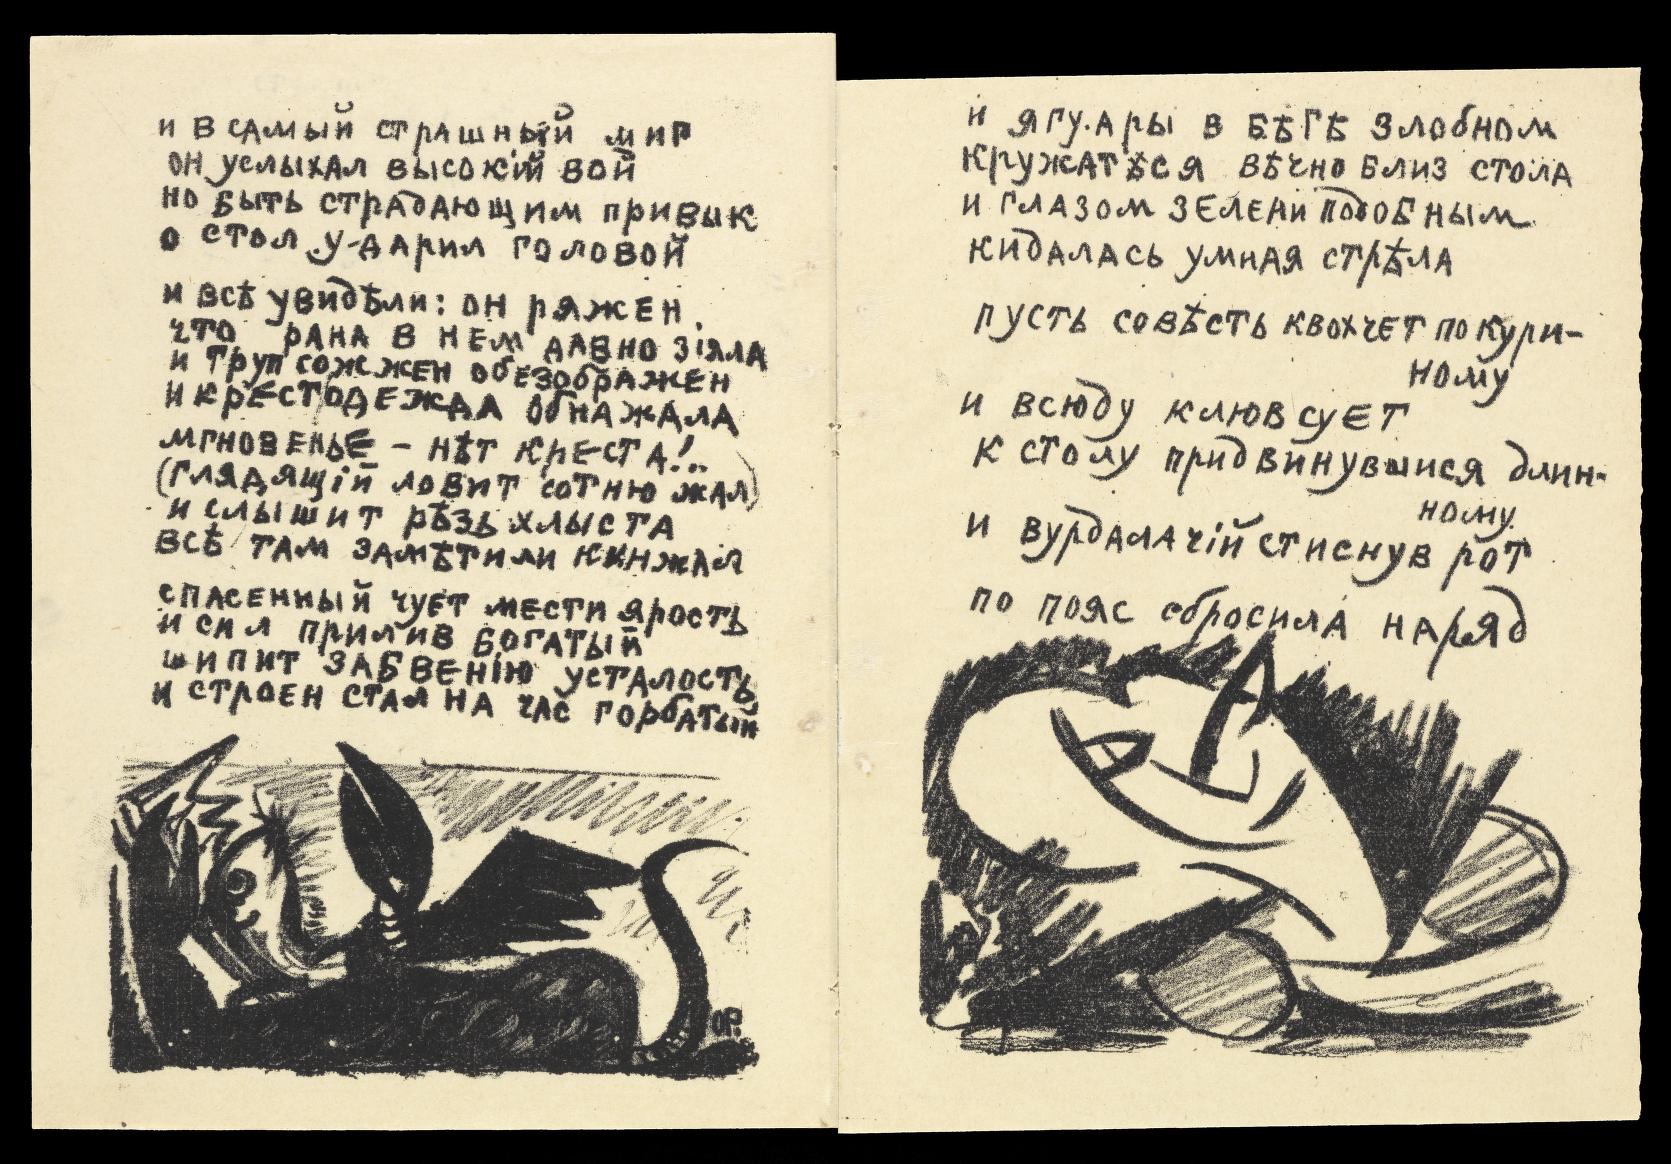 и в самый страшный миг
он услыхал высокій вой
но быть страдающим привык
о стол у-дарил головой
и всѣ увидѣли: он ряжен
что рана в нем давно зіяла
и труп сожжен обезображен
и крест одежда обнажала
мгновенье – нѣт креста!..
(глядящій ловит сотню жал)
и слышит рѣзь хлыста
всѣ там замѣтили кинжал
спасенный чует мести ярость
и сил прилив богатый
шипит забвенію усталость
и строен стал на час горбатый
ОР.
и ягу.ары в бѣгѣ злобном
кружатѣся вѣчно близ стола
и глазом зелени подобным
кидалась умная стрѣла
пусть совѣсть квохчет по кури-
ному
и всюду клюв сует
к столу придвинувшися длин-
ному
и вурдалачій стиснув рот
по пояс сбросила наряд